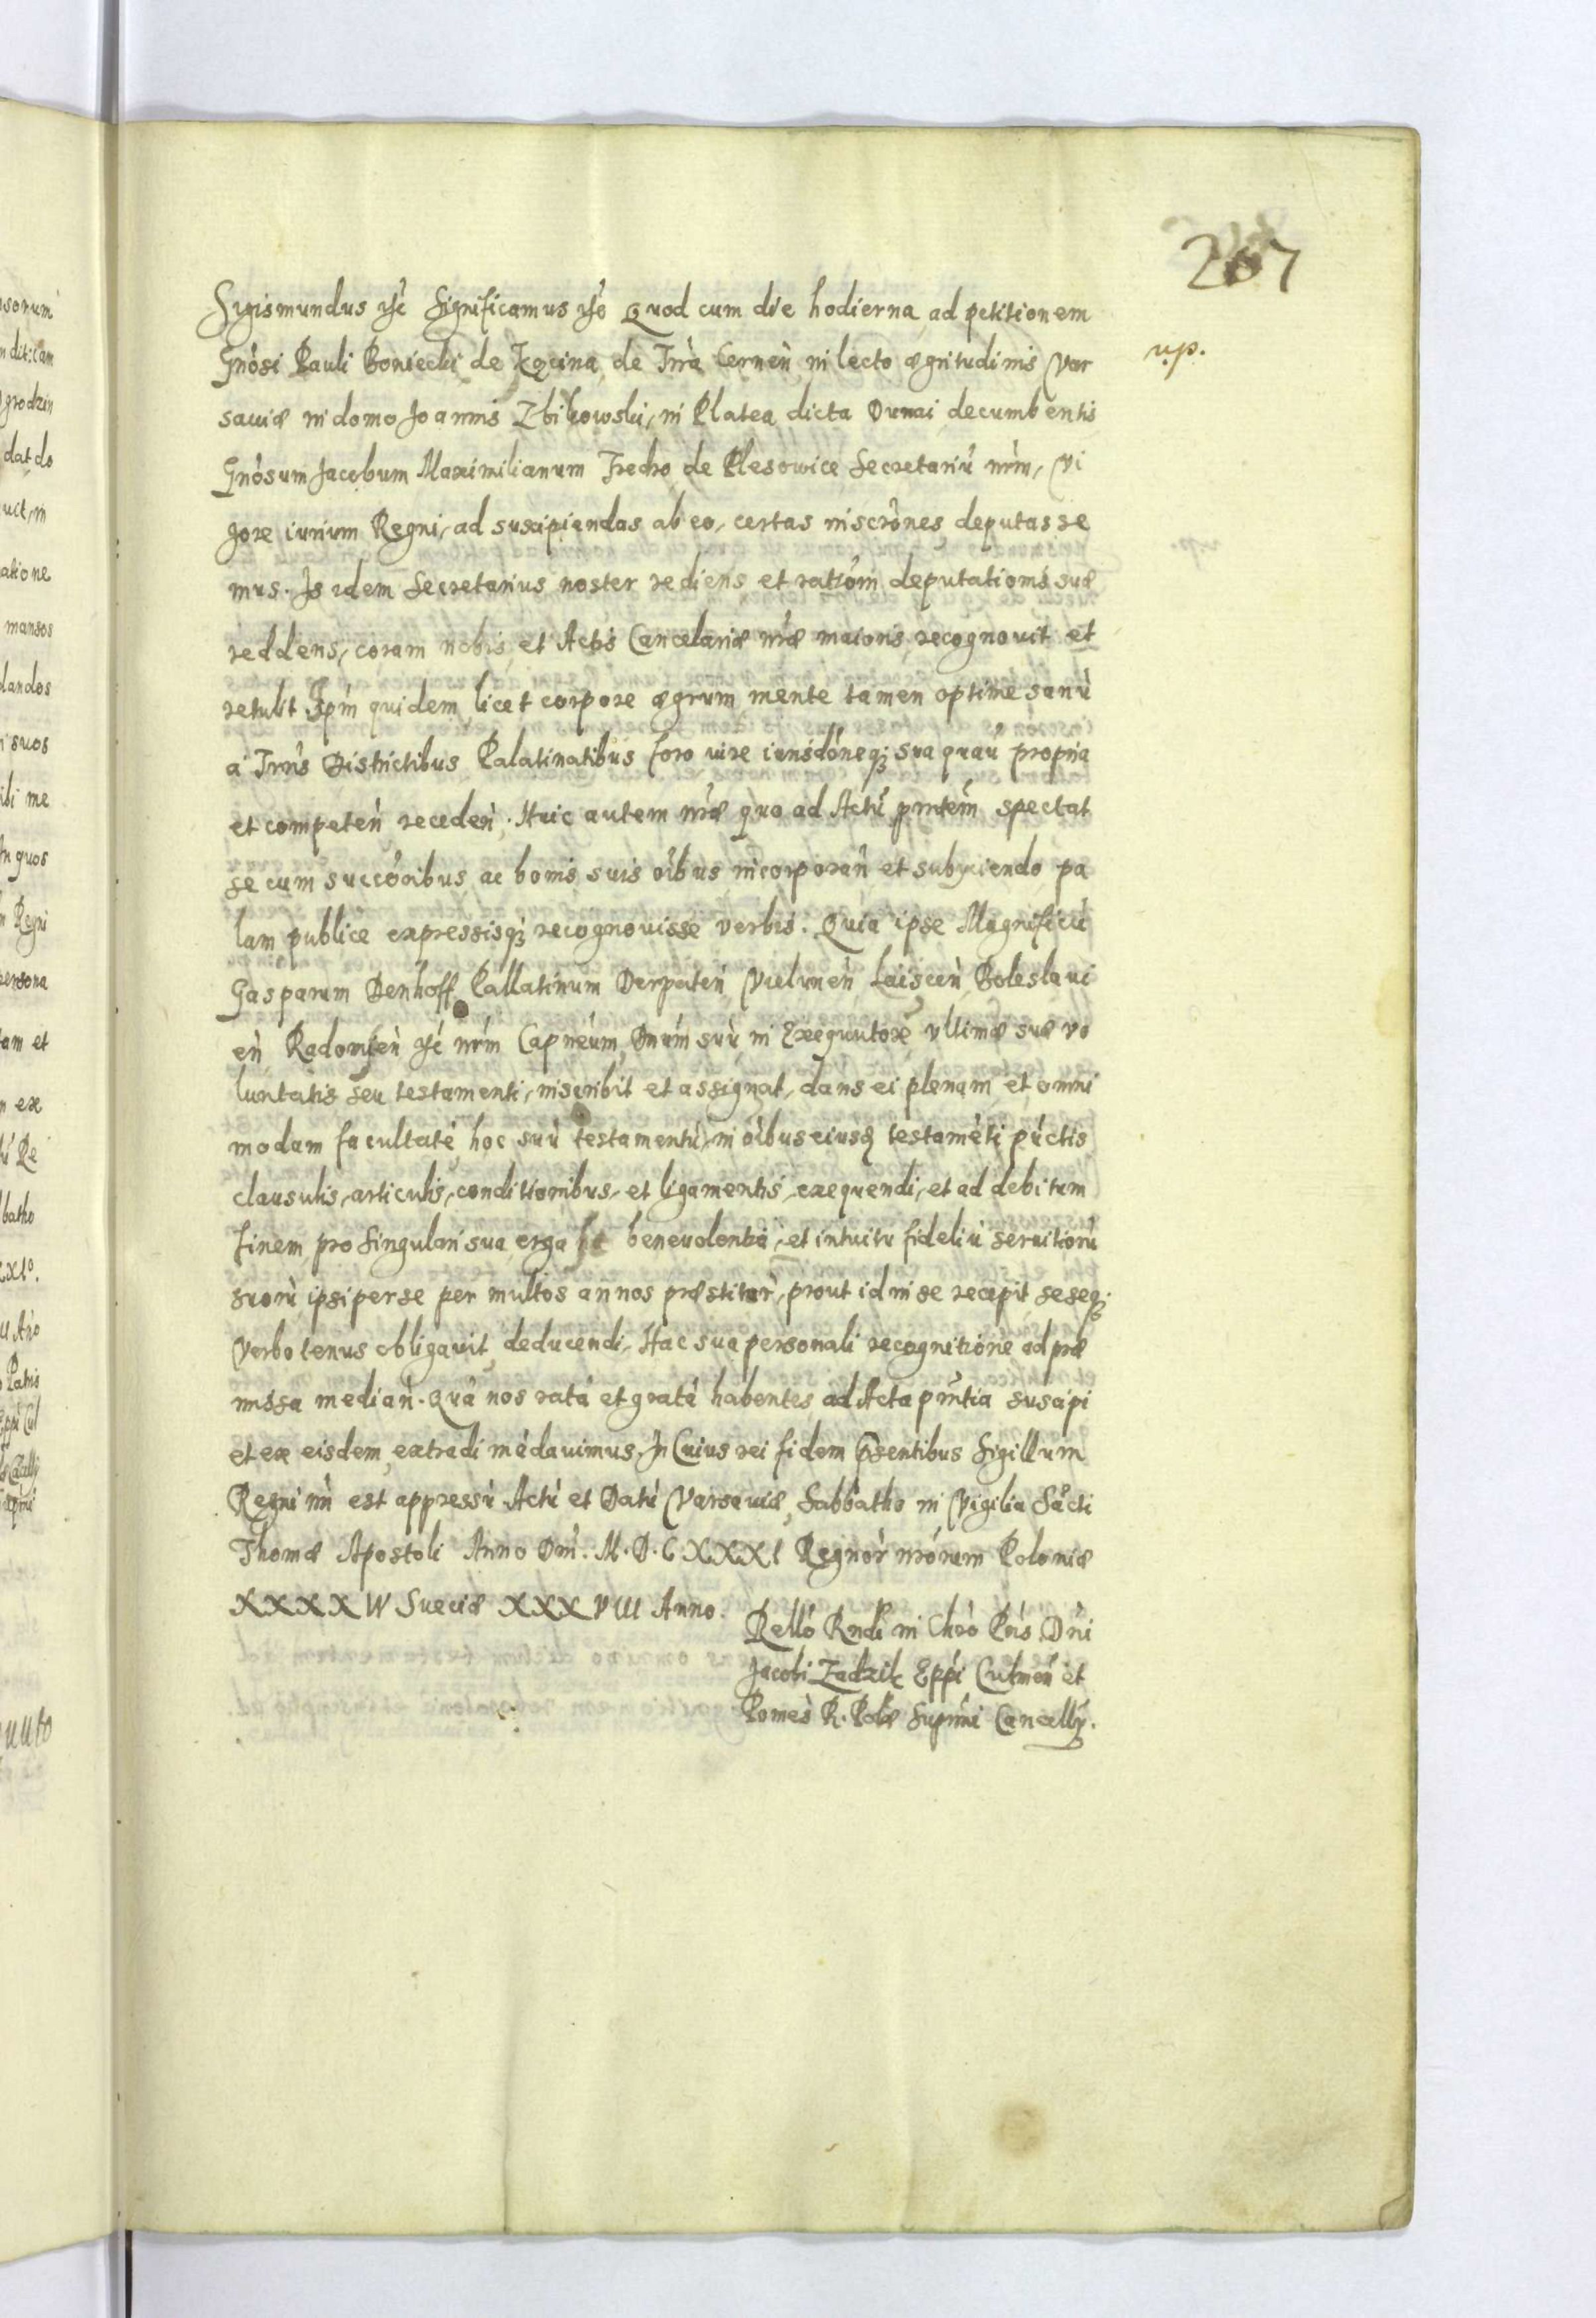 207
Sigismundus etc̃ Significamus etc̃ Quod cum die hodierna ad petitionem
Gnósi Pauli Boniecki de de Trã Cernen̄ in lecto ægritudinis Var
u.p.
sauiæ in domo Joannis Zbikowski, in Platea dicta Dunai decumbentis
Gnósum Jacobum Maximilianum Fredro de Plesowice Secretariũ nr̃m, Vi
gore iurium Regni, ad suscipiendas ab eo, certas inscrõnes deputasse
mus. Is idem Secretarius noster rediens et ratiõm deputationis suæ
reddens, coram nobis et Actis Cancelariæ nr̃æ maioris recognouit et
retulit Ipm̃ quidem licet corpore ægrum mente tamen optime sanũ
a Trrĩs Districtibus Palatinatibus foro iure iurisdõneq; sua quauĩ propria
et competeñ recedeñ. Huic autem nr̃æ quo ad Actũ pñtem̃ spectat
se cum succõribus ac bonis suis oĩbus incorporañ et subijciendo pa
lam publice expressisq; recognouisse verbis. Quia ipse Magnificũ
Gasparum Denhoff Pallatinum Derpateñ Vieluneñ Boleslaui
eñ Radomseñ etc̃ nr̃m Capneũm Dnũm suũ in Exequutorẽ vltimæ suæ vo
luntatis seu testamenti, inscribit et assignat, dans ei plenam et omni
modam facultatẽ hoc suũ testamentũ, in oĩbus eiusd testamẽti pũctis
clausulis, articulis, conditionibus, et ligamentis exequendi, et ad debitum
finem pro Singulari sua erga se beneuolentia, et intuitu fideliũ seruitiorũ
suorũ ipsi per se per multos annos præstitor̃, prout id in se recepit seseq;
Verbo tenus obligauit deducendi. Hac sua personali recognitione ad præ
missa medianñ. Quã nos ratã et gratã habentes ad Acta pñtia suscipi
et ex eisdem extradi mãdauimus. In Cuius rei fidem p̃sentibus Sigillum
Regni nr̃i est appressũ Actũ et Datũ Varsauiæ, Sabbatho in Vigilia Sãcti
Thomæ Apostoli Anno Dñi. M.D.C.XXXI Regnor̃ nr̃orum Poloniæ
XXXXIV Sueciæ XXXVIII Anno.
Rellõ Rndĩ in Chrõ Prĩs Dñi
Jacobi Zadzik Eppĩ Culmeñ et
Pomes̃ R. Polæ Supm̃i Cancellrij.